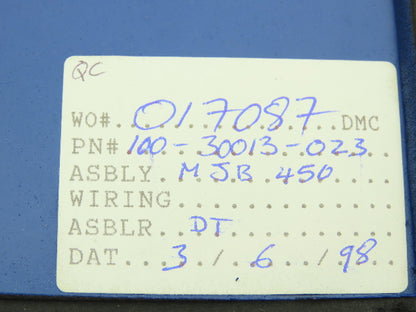 QC
WO#. 017087 DMC
PN# 100-30013-023
ASBLY. MJB 450
WIRING
ASBLR. DT
DAT. 3 / 6 / 98